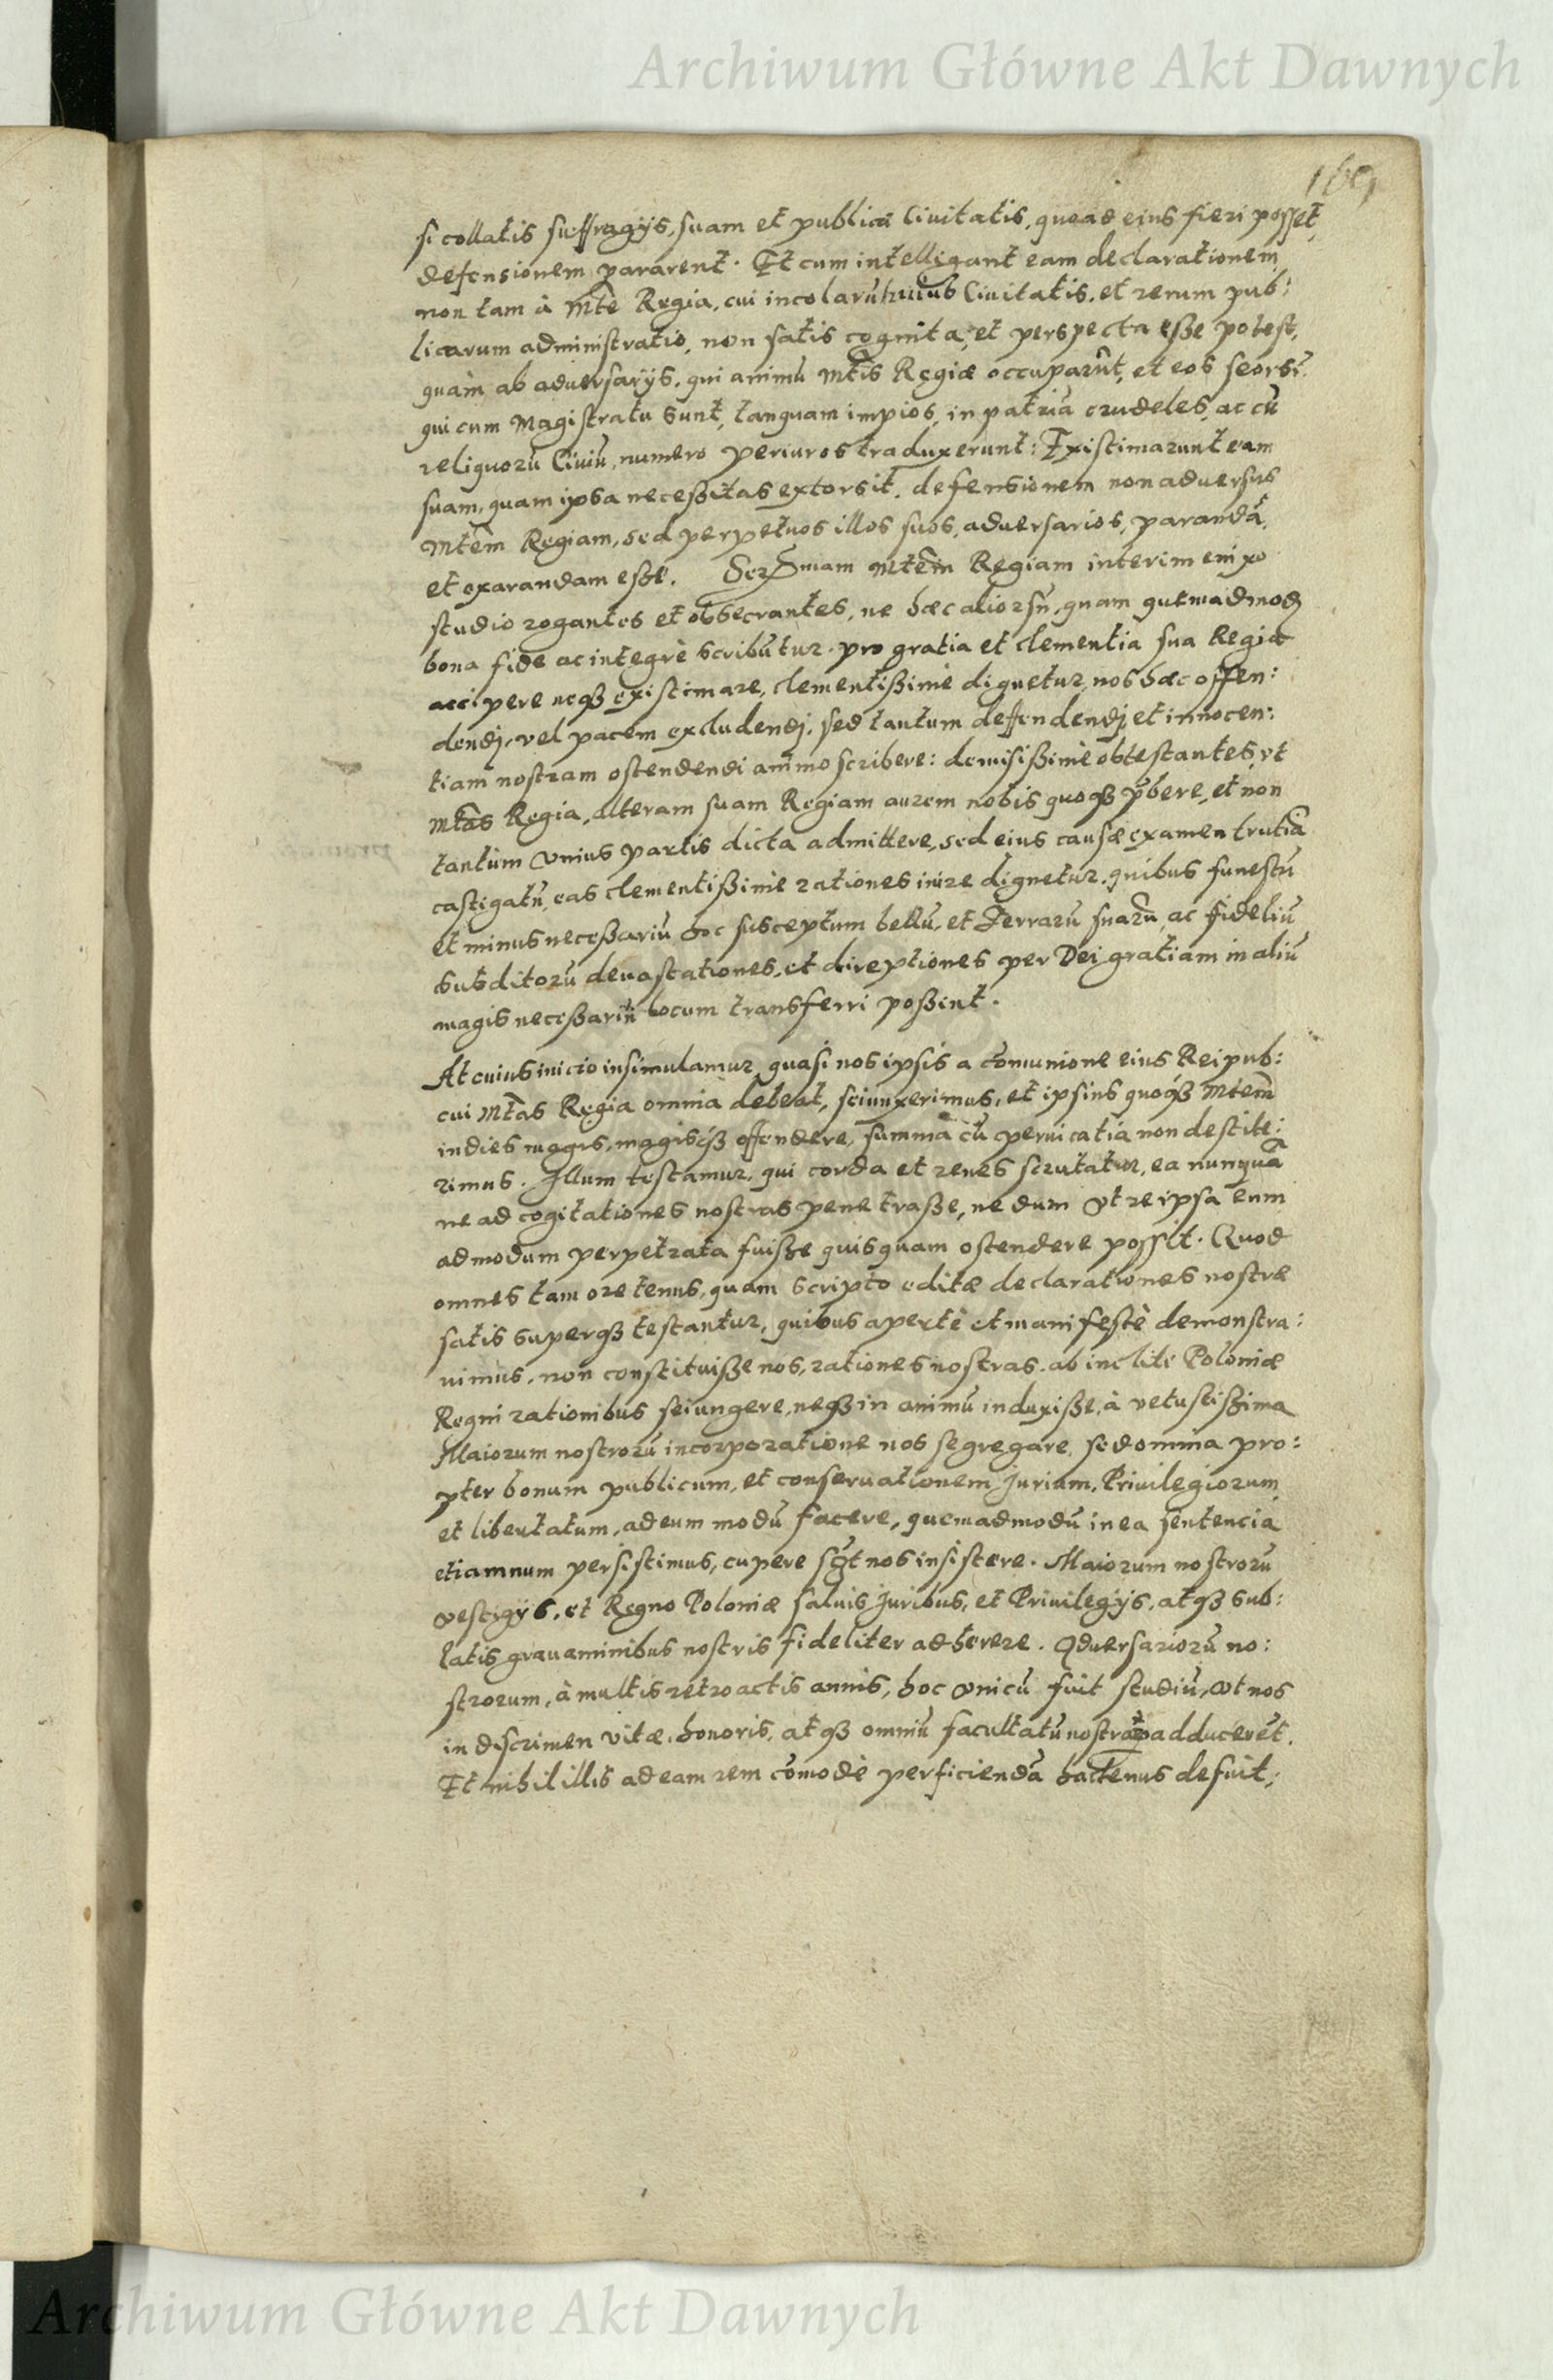 Archiwum Główne Akt Dawnych
169
si collatis suffragijs, suam et publicā Ciuitatis, quoad eius fieri posset,
defensionem pararent. Et cum intelligant eam declarationem
non tam à Mte Regia, cui incolarū huius Ciuitatis, et rerum pub:
licarum administratio, non satis cognita, et perspecta eße potest,
quàm ab aduersarijs, qui animū Mtis Regiæ occuparūt, et eos seorsī,
qui cum Magistratu sunt, tanquam impios, in patriā crudeles, ac cū
reliquorū Ciuiū numero periuros traduxerunt: Existimarunt eam
suam, quam ipsa neceßitas extorsit, defensionem non aduersus
Mtem Regiam, sed perpetuos illos suos, aduersarios, parandā,
et exarandam eße. Sermam Mtem Regiam interim enixo
studio rogantes et obsecrantes, ne hæc aliorsū, quam quemadmodū
bona fide ac integrè scribūtur, pro gratia et clementia sua Regia
accipere neqꝫ existimare, clementißimè dignetur, nos hæc offen:
dendj, vel pacem excludendj, sed tantum deffendendj et innocen:
tiam nostram ostendendi animo scribere: demisißimè obtestantes, vt
Mtas Regia, alteram suam Regiam aurem nobis quoqꝫ p̄bere, et non
tantùm vnius partis dicta admittere, sed eius causæ examen trutinā
castigatū, eas clementißimè rationes inire dignetur, quibus funestū
et minus neceßariū hoc susceptum bellū, et Terrarū suarū, ac fideliū
subditorū deuastationes, et direptiones per Dei gratiam in aliū
magis neceßariū locum transferri poßint.
At cuius inicio insimulamur, quasi nos ipsis a comunione eius Reipub:
cui Mtas Regia omnia debeat, seiunxerimus, et ipsius quoqꝫ Mtem
indies magis, magisqꝫ offendere, summa cū peruicatia non destite:
rimus. Illum testamur, qui corda et renes scrutatur, ea nunquā
ne ad cogitationes nostras penetraße, ne dum vt re ipsa eum
ad modum perpetrata fuiße quisquam ostendere possit. Quod
omnes tam ore tenus, quam scripto editæ declarationes nostræ
satis superqꝫ testantur, quibus apertè et manifestè demonstra:
uimus, non constituiße nos, rationes nostras, ab inclitè Poloniæ
Regni rationibus seiungere, neqꝫ in animū induxiße, à vetustißima
Maiorum nostrorū incorporatione nos segregare, sed omnia pro:
pter bonum publicum, et conseruationem Jurium, Priuilegiorum
et libertatum, ad eum modū facere, quemadmodū in ea sentencia
etiamnum persistimus, cupere sc̄t nos insistere. Maiorum nostrorū
vestigijs, et Regno Poloniæ saluis Juribus, et Priuilegijs, atqꝫ sub:
latis grauaminibus nostris fideliter adherere. Aduersariorū no:
strorum, à multis retroactis annis, hoc vnicū fuit studiū, vt nos
in discrimen vitæ, honoris, atqꝫ omniū facultatū nostrarū adducerēt.
Et nihil illis ad eam rem comodè perficiendā hactenus defuit,
Archiwum Główne Akt Dawnych